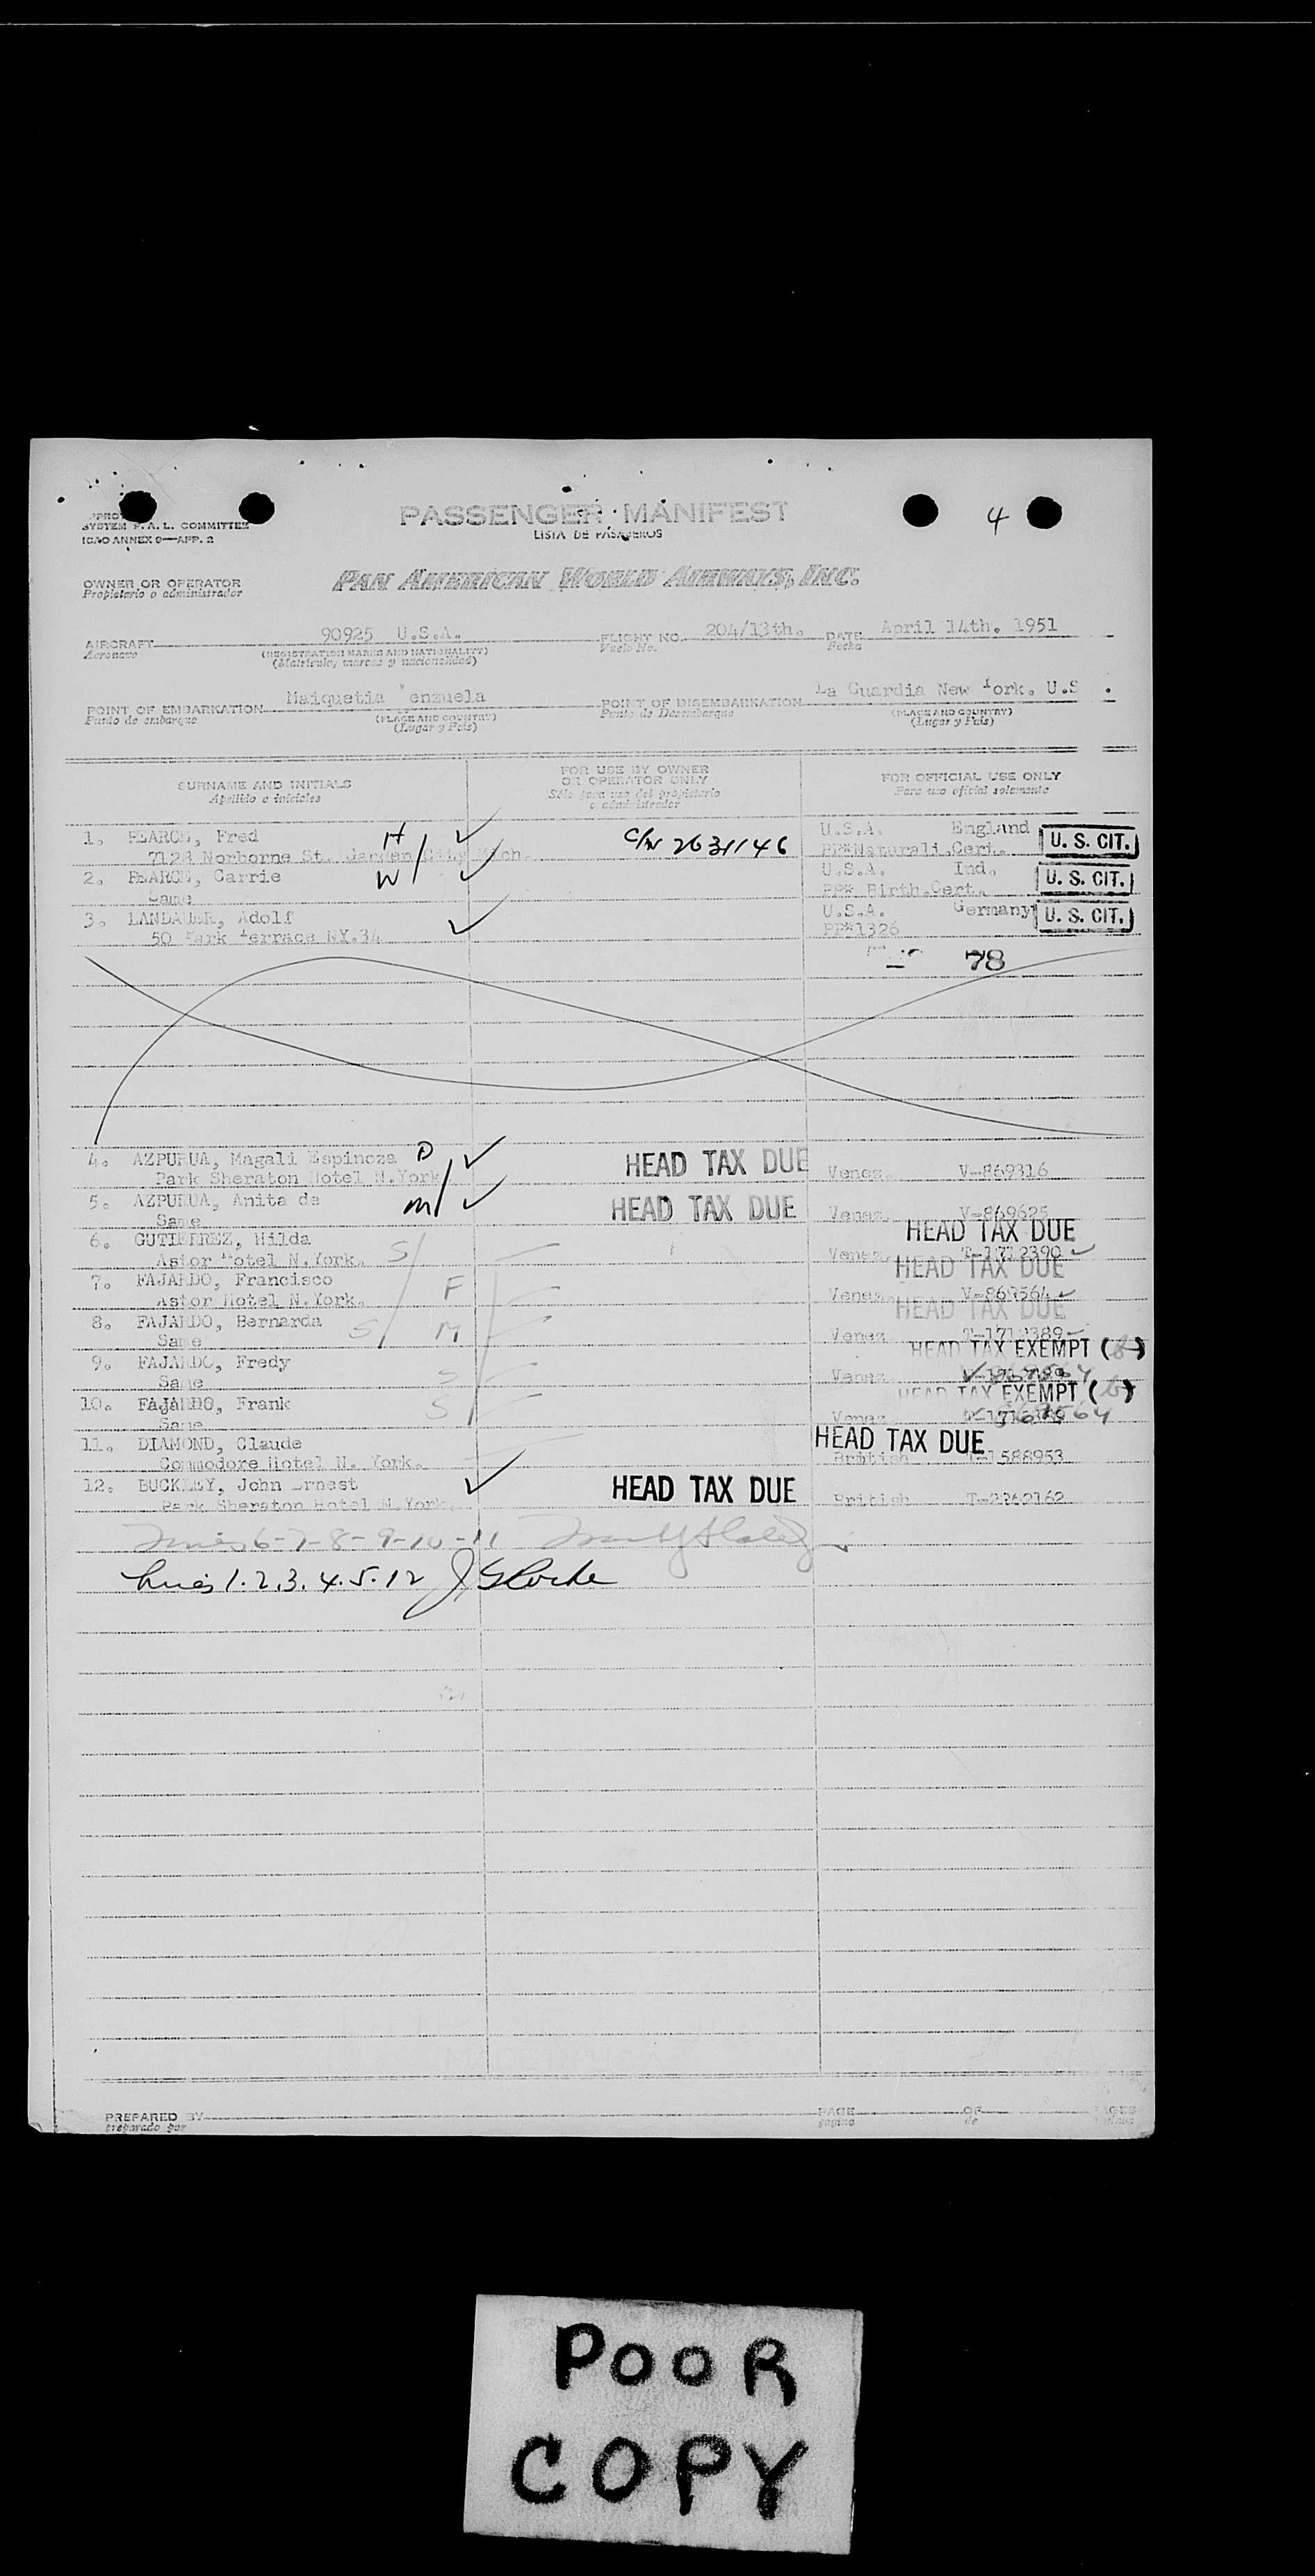 PASSENGER MANIFEST
4
LISTA DE PASAJEROS
SYSTEM F. A. L. COMMITTEE
ICAO ANNEX 9—APP. 2
OWNER OR OPERATOR
Propietario o administrador
PAN AMERICAN WORLD AIRWAYS, INC.
AIRCRAFT 90925 U.S.A. FLIGHT NO. 204/13th. DATE April 14th. 1951
Aeronave (REGISTRATION MARKS AND NATIONALITY) Vuelo No. Fecha
(Matrícula, marcas y nacionalidad)
POINT OF EMBARKATION Maiquetia enzuela POINT OF DISEMBARKATION La Guardia New York. U.S .
Punto de embarque (PLACE AND COUNTRY) Punto de Desembarque (PLACE AND COUNTRY)
(Lugar y País) (Lugar y País)
SURNAME AND INITIALS FOR USE BY OWNER OR OPERATOR ONLY FOR OFFICIAL USE ONLY
Apellido e iniciales Sólo para uso del propietario o administrador Para uso oficial solamente
1. PEARCE, Fred H C/N 2631146 U.S.A. England U. S. CIT.
7128 Norborne St. Garden City Mich. PP#Naturali.Cert.
2. PEARCE, Carrie W U.S.A. Ind. U. S. CIT.
Same PP# Birth.Cert.
3. Adolf U.S.A. Germany U. S. CIT.
50 Park Terrace NY.34 PP#1326
78
4. AZPURUA, Magali Espinoza D HEAD TAX DUE
Park Sheraton Hotel N.York Venez. V-869316
5. AZPURUA, Anita de M HEAD TAX DUE Venez. V-869625
Same HEAD TAX DUE
6. GUTIERREZ, Hilda S
Astor Hotel N.York. Venez. T-1712390
HEAD TAX DUE
7. FAJARDO, Francisco F
Astor Hotel N.York. Venez. V-869564
HEAD TAX DUE
8. FAJARDO, Bernarda S M
Same Venez. T-1712389
HEAD TAX EXEMPT (b)
9. FAJARDO, Fredy S
Same Venez.
HEAD TAX EXEMPT (b)
10. FAJARDO, Frank S
Same Venez.
11. DIAMOND, Claude HEAD TAX DUE
Commodore Hotel N. York. British T-1588953
12. BUCKLEY, John Ernest HEAD TAX DUE
Park Sheraton Hotel N.York. British T-2262162
Lines 6-7-8-9-10-11
Lines 1.2.3.4.5.12
PREPARED BY PAGE OF PAGES
preparado por página de
POOR
COPY